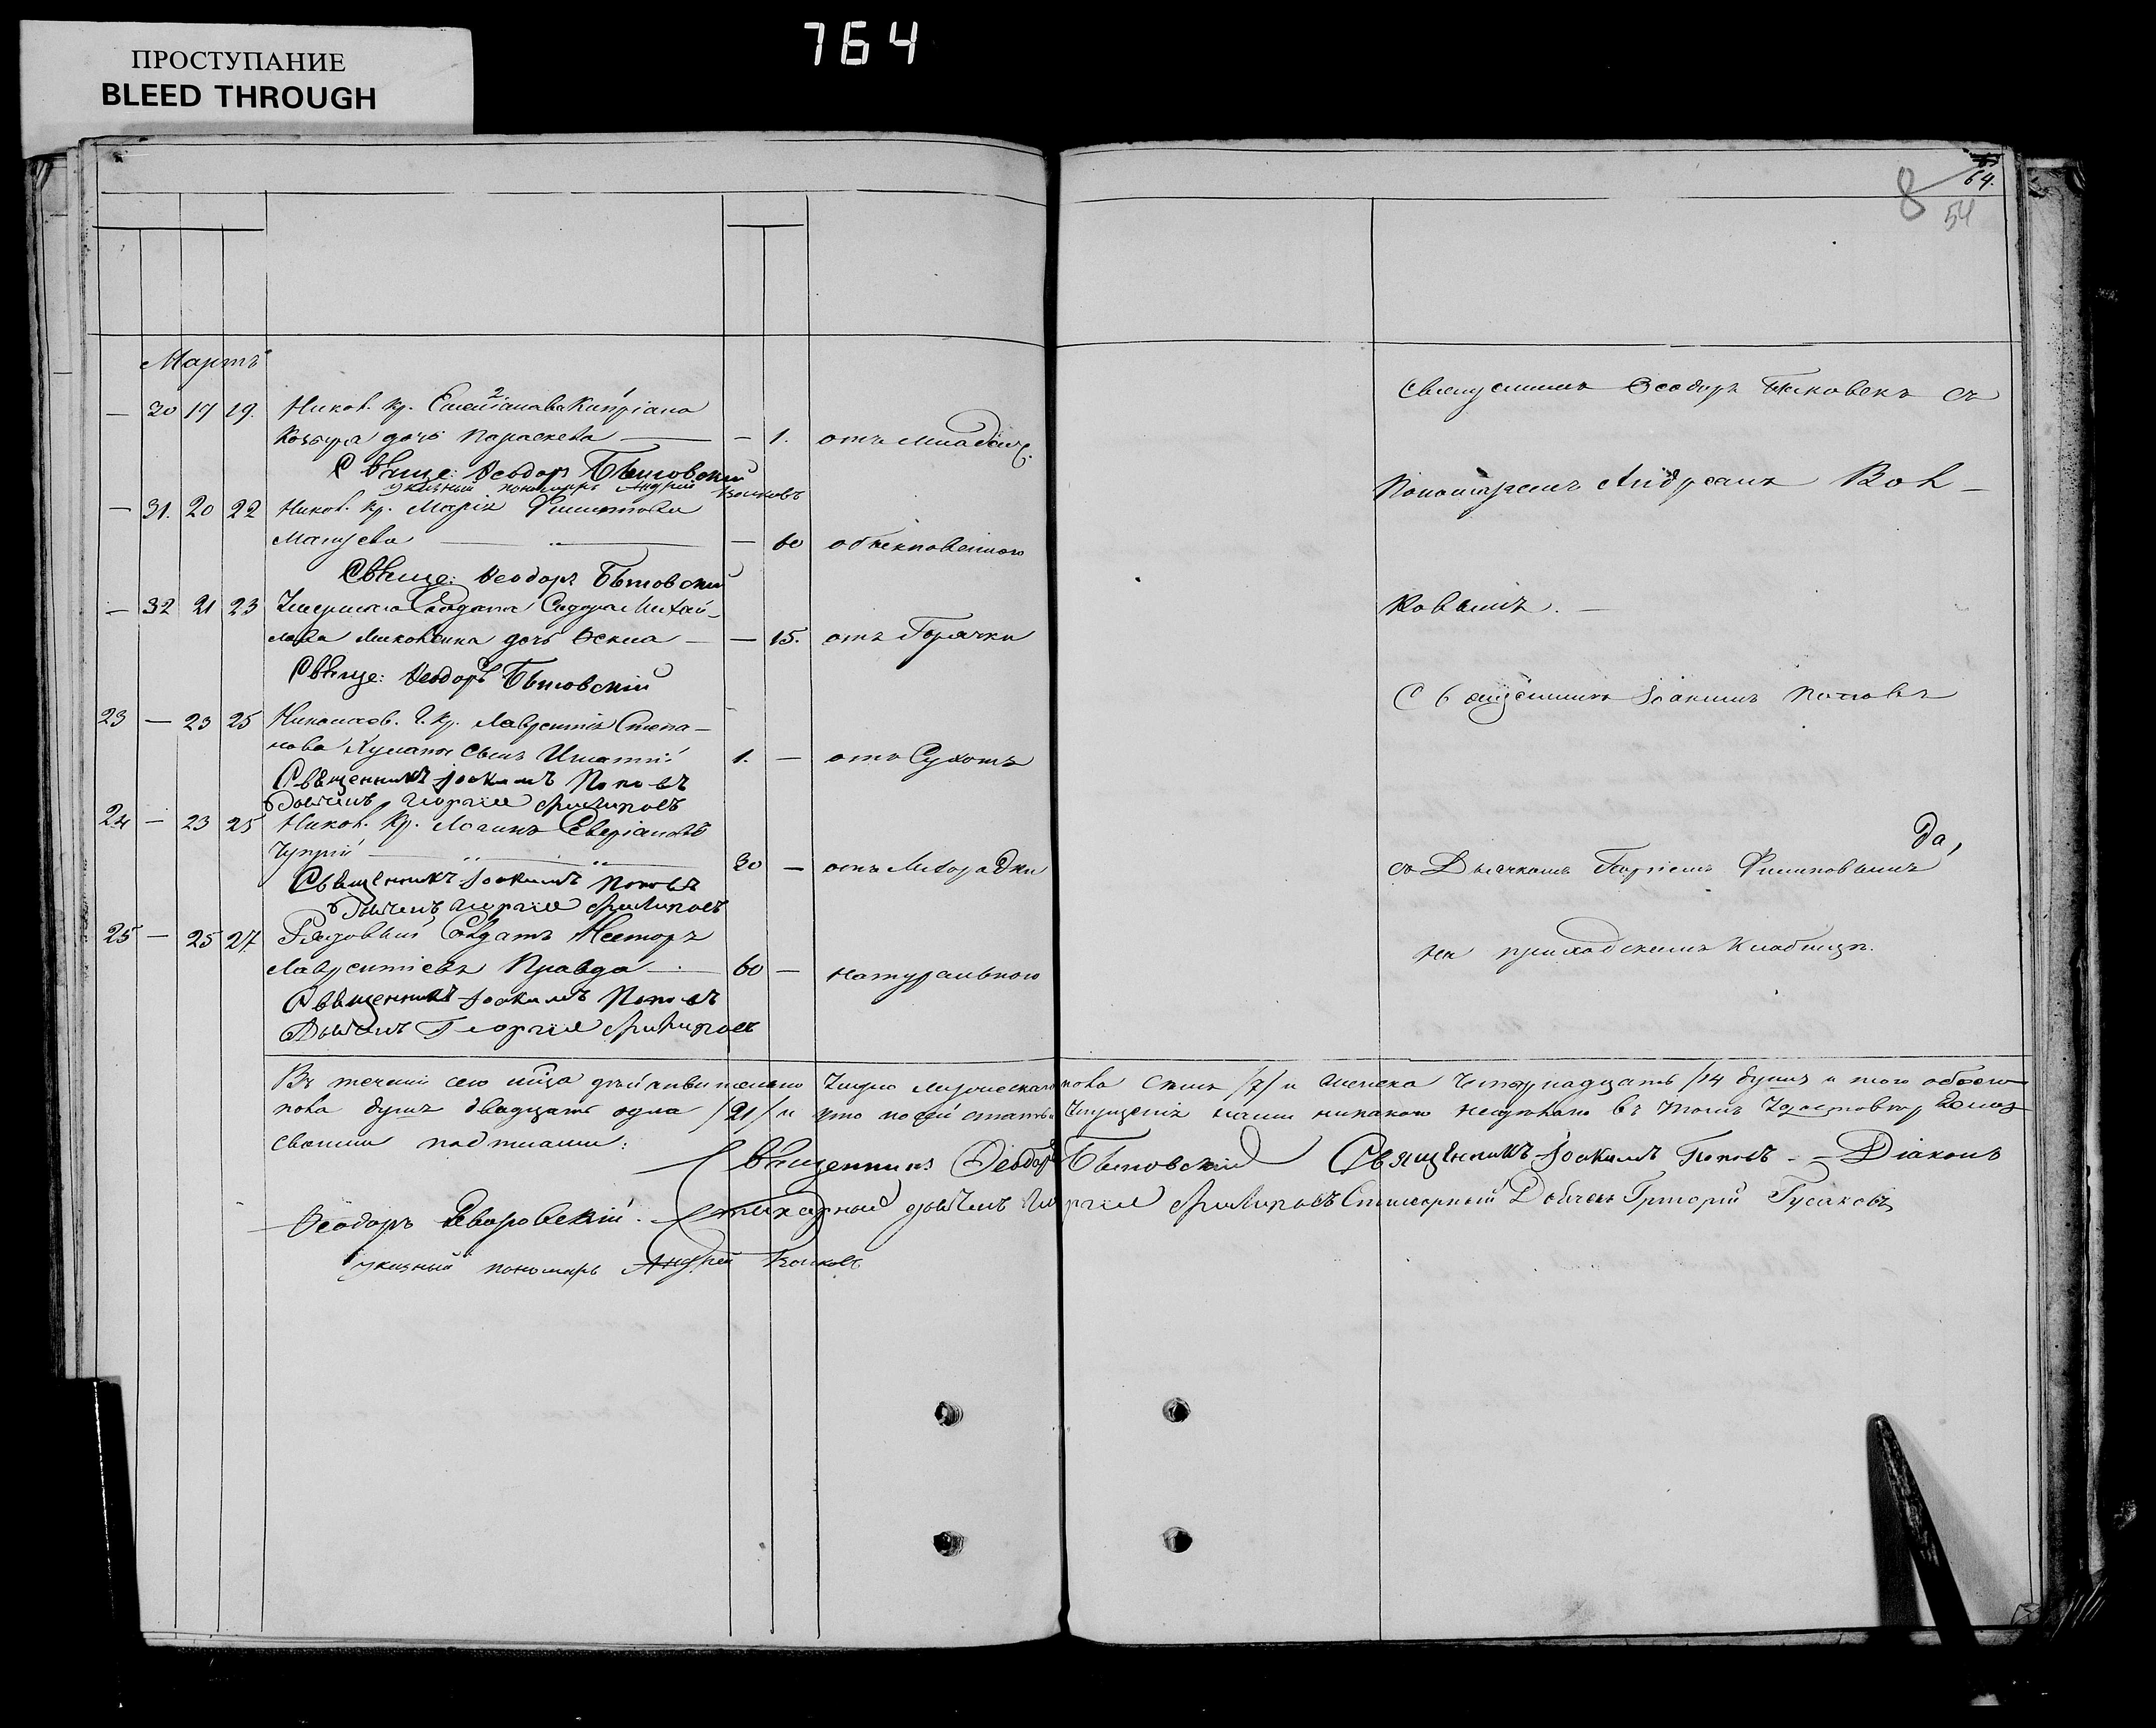 764
ПРОСТУПАНИЕ
BLEED THROUGH
8 64.
54
Мартъ
— 30 17 19. Никол. кр. Кипріана
дочь Параскева — — 1. отъ младенч.
Свяще: Ѳеодоръ Бытовскій
указный пономарь Андрей Волковъ
— 31. 20 22 Никол. кр. Марія
— 60 обыкновенного
Свяще: Ѳеодоръ Бытовскій
— 32 21 23 Солдата Сидора Михай-
лова дочь — — 15. отъ Горячки
Свяще: Ѳеодоръ Бытовскій
23 — 23 25 Николаев. Г. кр. Лаврентія Степа-
нова сынъ Игнатій 1. — отъ Сухотъ
Священникъ Іоакимъ Поповъ
Дьячекъ Георгій Филиповъ
24 — 23 25 Никол. Кр. Логинъ
Чуприй — 30 — отъ Лихорадки
Священникъ Іоакимъ Поповъ
Дьячекъ Георгій Филиповъ
25 — 25 27 Рядовый Солдатъ Несторъ
Лаврентіевъ Правда — 60 — натурального
Священникъ Іоакимъ Поповъ
Дьячекъ Георгій Филиповъ
Священникъ Ѳеодоръ съ
Пономаремъ Андреемъ Вол-
ковымъ. —
Священникъ Іоакимъ Поповъ
съ Дьячкомъ Георгіемъ Филиповымъ
Да,
на приходскомъ кладбищѣ.
Въ теченіи сего мѣца умерло мужеска пола семь /7/ и женска четырнадцать /14 душъ и того обоего
пола душъ двадцать одна /21/ и что по сей статьи наши никакого въ томъ
своими подписами:
Священникъ Ѳеодоръ Бытовскій Священникъ Іоакимъ Поповъ — Діаконъ
Ѳеодоръ Стихарный дьячекъ Георгій Филиповъ Стихарный Дьячекъ Григорій Гусаковъ
указный пономарь Андрей Волковъ